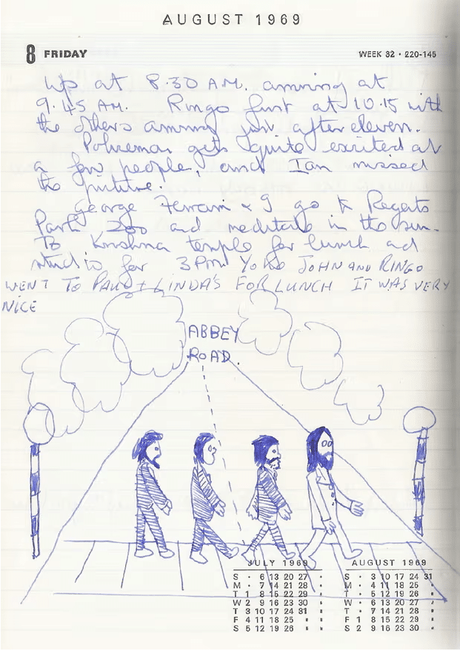 AUGUST 1969
8 FRIDAY WEEK 32 · 220-145
Up at 8.30 A.M. arriving at
9.45 AM. Ringo first at 10.15 with
the others arriving just after eleven.
Policeman gets quite excited at
a few people, and Ian missed
the picture.
George Ferrari & I go to Regents
Park Zoo and meditate in the sun.
To Krishna temple for lunch and
studio for 3PM YOKO JOHN AND RINGO
WENT TO PAUL + LINDA'S FOR LUNCH IT WAS VERY
NICE
ABBEY
ROAD.
JULY 1969 AUGUST 1969
S · 6 13 20 27 S · 3 10 17 24 31
M · 7 14 21 28 · M · 4 11 18 25 ·
T 1 8 15 22 29 · T · 5 12 19 26 ·
W 2 9 16 23 30 · W · 6 13 20 27 ·
T 3 10 17 24 31 · T · 7 14 21 28 ·
F 4 11 18 25 · · F 1 8 15 22 29 ·
S 5 12 19 26 · · S 2 9 16 23 30 ·